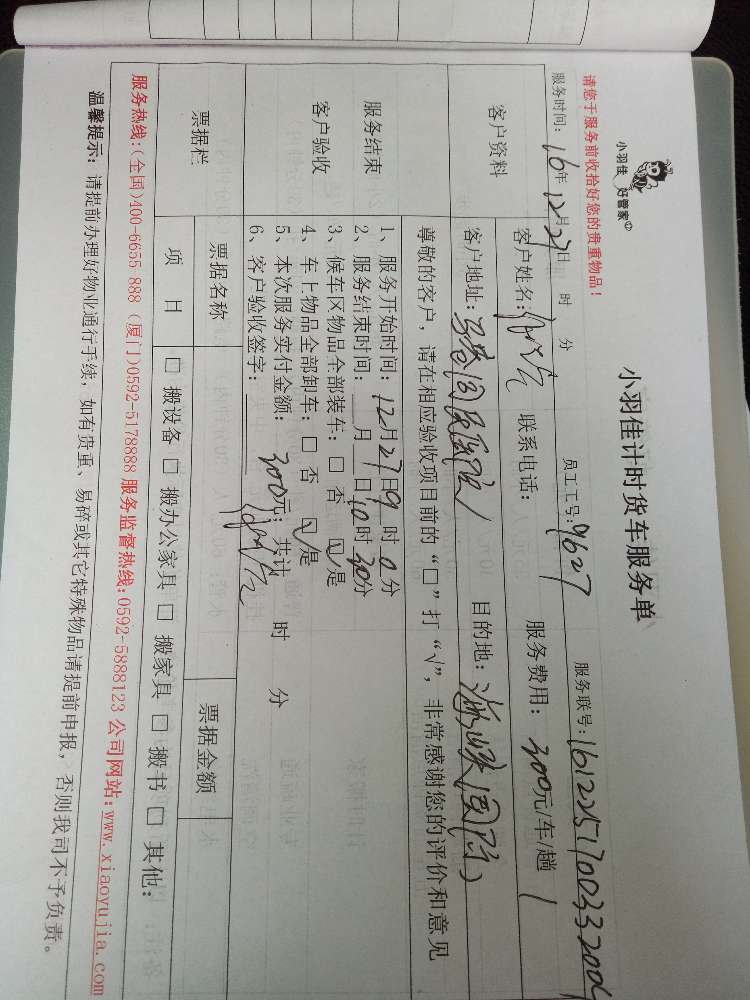 小羽佳 好管家
小羽佳计时货车服务单
请您于服务前收拾好您的贵重物品！
服务时间：16年12月27日 时 分 员工工号：9627 服务联号：
客户资料
客户姓名： 联系电话： 服务费用：300元/车/趟
客户地址： 目的地：
尊敬的客户，请在相应验收项目前的“□”打“√”，非常感谢您的评价和意见
服务结束
客户验收
1、服务开始时间：12月27日9时0分
2、服务结束时间： 月 日10时30分
3、候车区物品全部装车：□ 否 ☑是
4、车上物品全部卸车：□ 否 ☑是
5、本次服务实付金额：300元；共计 时 分
6、客户验收签字：
票据栏
票据名称 票据金额
项 目 □ 搬设备 □ 搬办公家具 □ 搬家具 □ 搬书 □ 其他：
服务热线：(全国)400-6655 888 (厦门)0592-5178888 服务监督热线：0592-5888123 公司网站：www.xiaoyujia.com
温馨提示：请提前办理好物业通行手续，如有贵重、易碎或其它特殊物品请提前申报，否则我司不予负责。